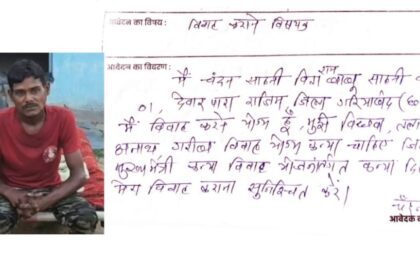 आवेदन का विषय : विवाह कराने विषयक
आवेदन का विवरण :
राम
मैं चंदन साहनी पिता बाबू साहनी
01, देवार पारा राजिम, जिला गरियाबंद
मैं विवाह करने योग्य हूँ, मुझे विधवा,
अनाथ गरीब विवाह योग्य कन्या चाहिए
मुख्यमंत्री कन्या विवाह योजनांतर्गत कन्या
मेरा विवाह कराना सुनिश्चित करें।
आवेदक